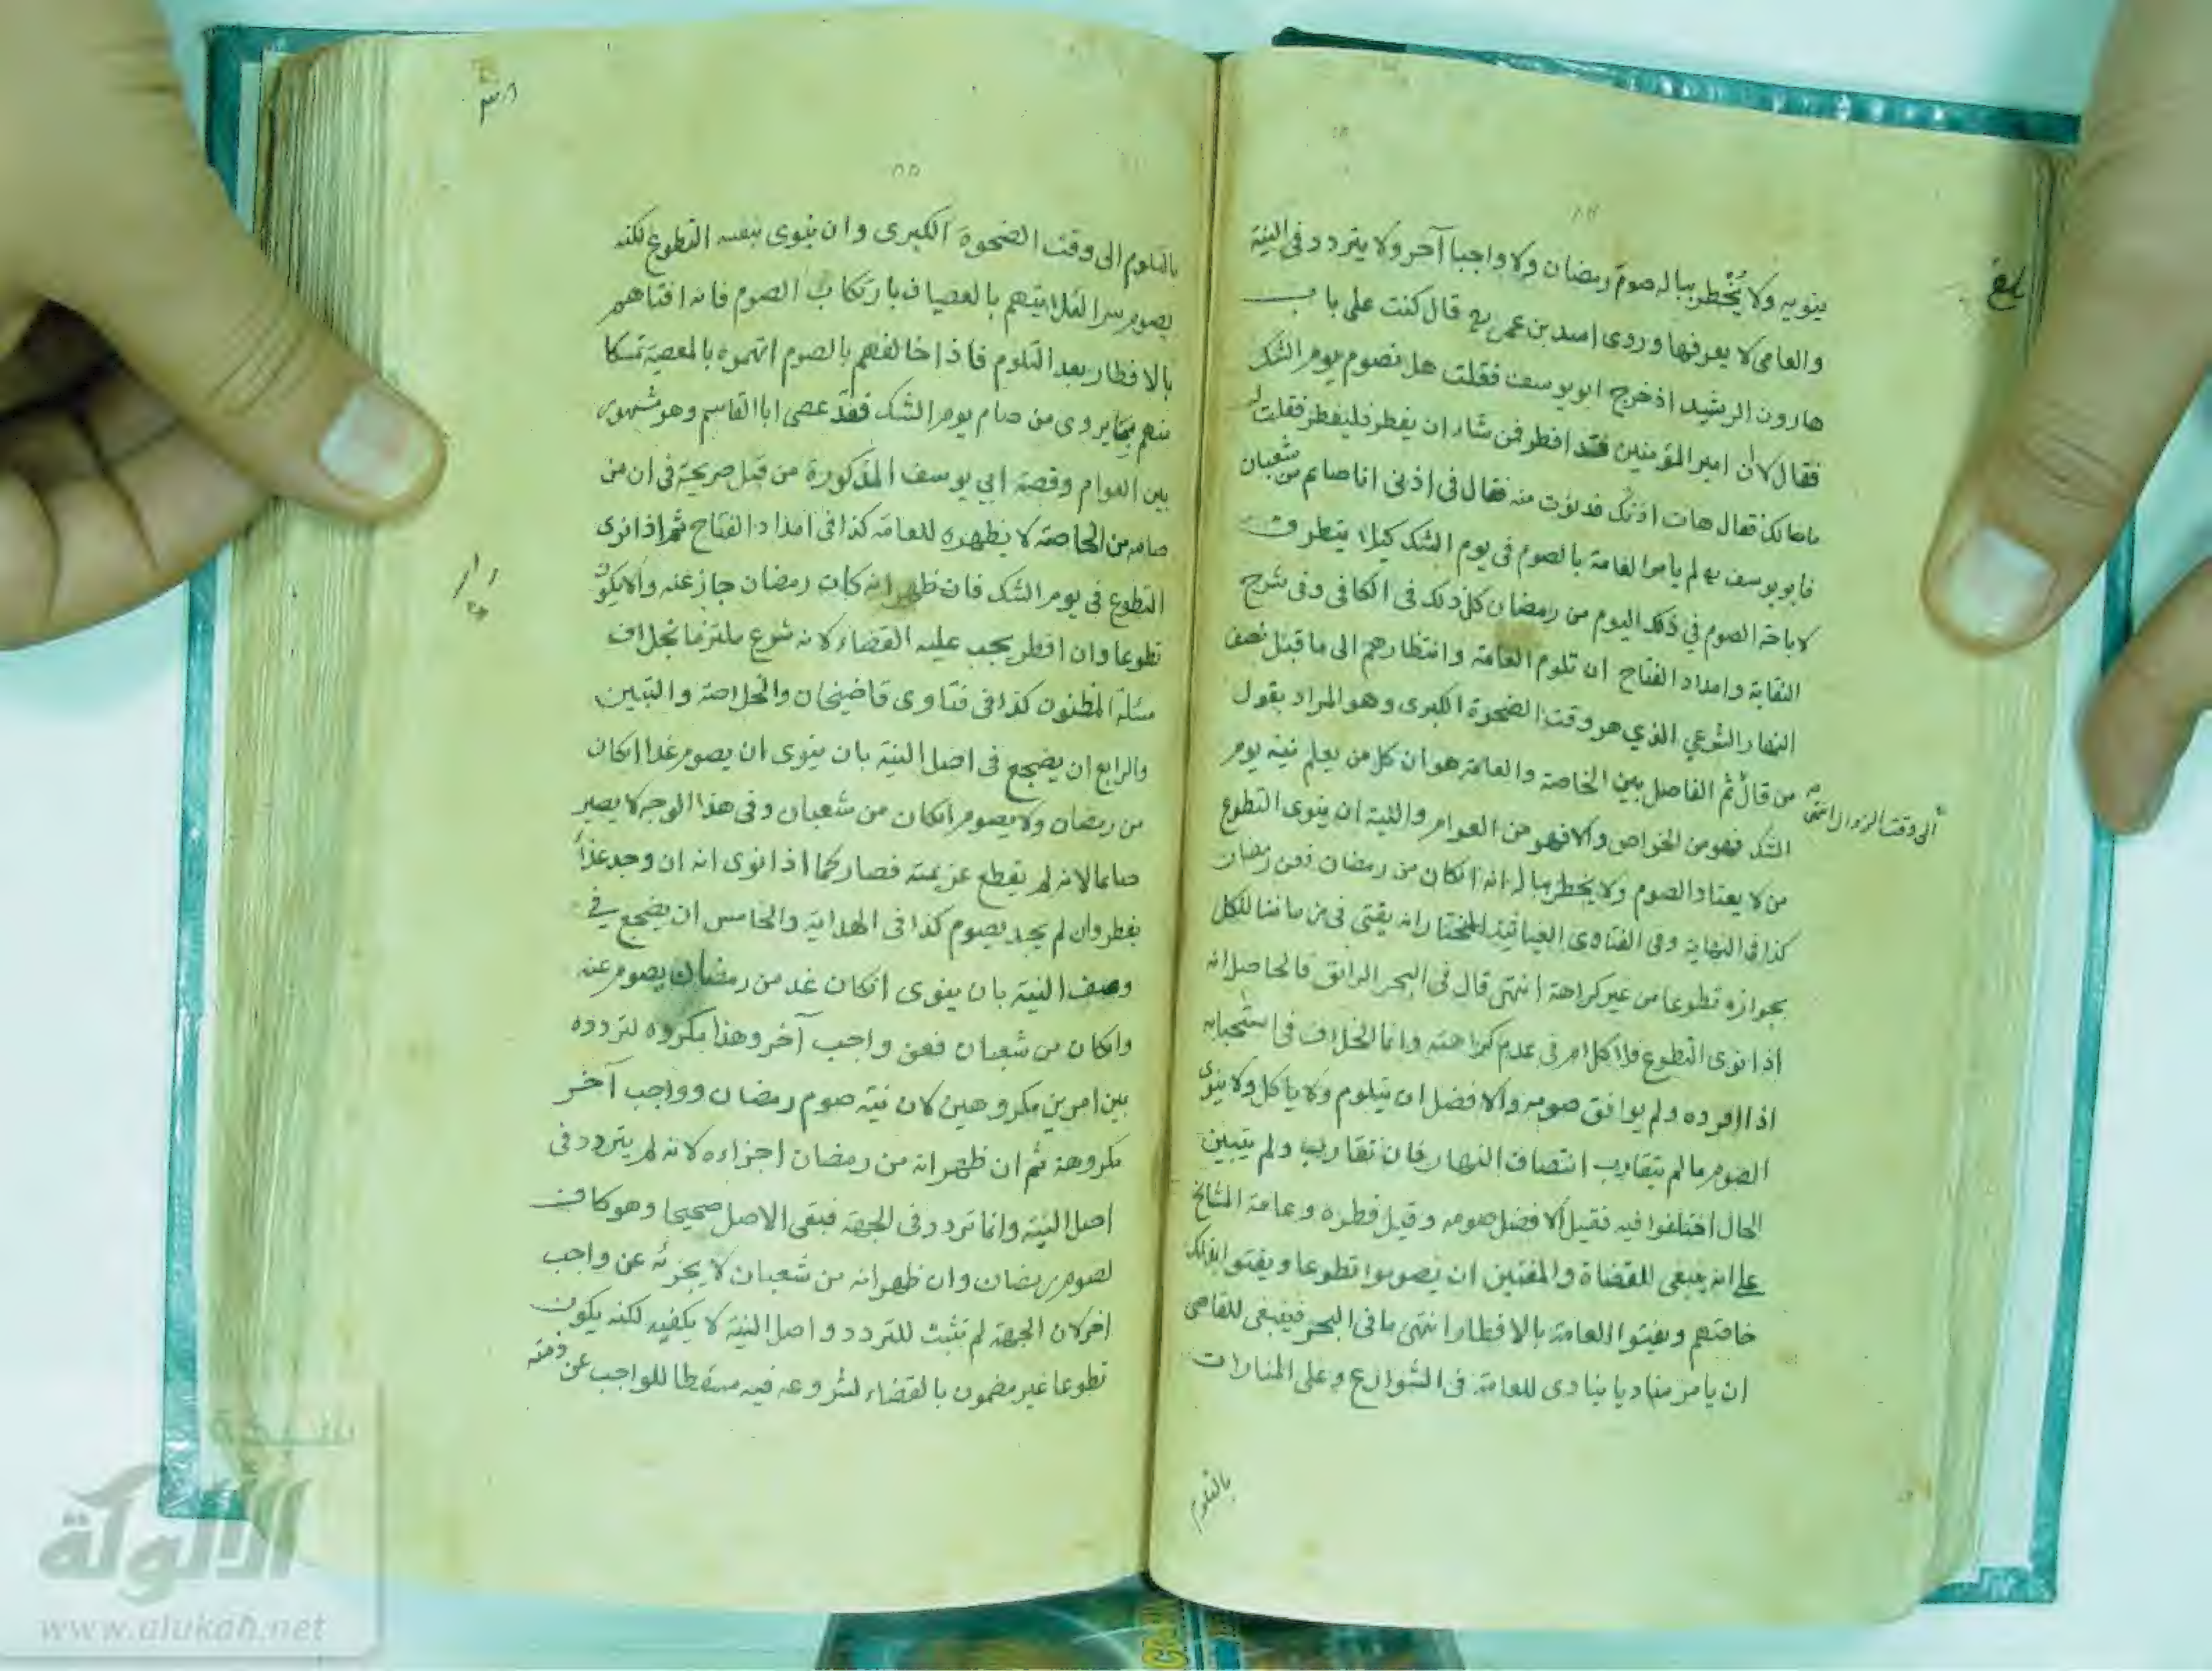 ينويه ولا يُخْطِر بباله صوم رمضان ولا واجبا آخر ولا يتردد في النية
والعامي لا يعرفها وروى اسد بن عمرو قال كنت على باب
هارون الرشيد اذ خرج ابو يوسف فقلت هل نصوم يوم الشك
فقال لان امير المؤمنين قد افطر فمن شاء ان يفطر فليفطر فقلت له
ما مالك فقال هات اذنك فدنوت منه فقال في اذنى انا صايم من شعبان
فابو يوسف لم يأمر العامة بالصوم في يوم الشك كيلا يتطرق
لاباحة الصوم في ذلك اليوم من رمضان كل ذلك في الكافى وفى شرح
النقاية وامداد الفتاح ان تلوم العامة وانتظارهم الى ما قبل نصف
النهار الشرعي الذي هو وقت الضحوة الكبرى وهو المراد بقول
من قال ثم الفاصل بين الخاصة والعامة هو ان كل من يعلم نية يوم
الى وقت الزوال انتهى
الشك فهو من الخواص والا فهو من العوام والنية ان ينوى التطوع
من لا يعتاد الصوم ولا يخطر بباله انه انكان من رمضان فعن رمضان
كذا فى النهاية وفى الفتاوى العياثية المختار انه يفتى فى زماننا للكل
بجوازه تطوعا من غير كراهة انتهى قال فى البحر الرائق فالحاصل انه
اذا نوى التطوع فلا كلام فى عدم كراهته وانما الخلاف فى استحبابه
اذا افرده ولم يوافق صومه والافضل ان يتلوم ولا ياكل ولا ينوى
الصوم ما لم يتقارب انتصاف النهار فان تقارب ولم يتبين
الحال اختلفوا فيه فقيل الافضل صومه وقيل فطره وعامة المشايخ
على انه ينبغى للقضاة والمفتين ان يصوموا تطوعا ويفتوا بذلك
خاصتهم ويفتوا العامة بالافطار انتهى ما فى البحر فينبغى للقاضى
ان يامر مناديا ينادى للعامة فى الشوارع وعلى المنارات
بالتلوم
بالتلوم الى وقت الضحوة الكبرى وان ينوى بنفسه التطوع لكنه
يصوم سرا لئلا يتهم بالعصيان بارتكاب الصوم فانه افتاهم
بالافطار بعد التلوم فاذا خالفهم بالصوم اتهموه بالمعصية تمسكا
منهم بما يروى من صام يوم الشك فقد عصى ابا القاسم وهو مشهور
بين العوام وقصة ابي يوسف المذكورة من قبل صريحة فى ان من
صامه من الخاصة لا يظهره للعامة كذا فى امداد الفتاح ثم اذا نوى
التطوع فى يوم الشك فان ظهر انه كان رمضان جاز عنه والا يكون
تطوعا وان افطر يجب عليه القضاء لانه شرع ملتزما بخلاف
مسئلة المظنون كذا فى فتاوى قاضيخان والخلاصة والتبيين
والرابع ان يضجع فى اصل النية بان ينوى ان يصوم غدا انكان
من رمضان ولا يصوم انكان من شعبان وفى هذا الوجه لا يصير
صائما لانه لم يقطع عزيمته فصار كما اذا نوى انه ان وجد غداءً
يفطر وان لم يجد يصوم كذا فى الهداية والخامس ان يضجع فى
وصف النية بان ينوى انكان غد من رمضان يصوم عنه
وانكان من شعبان فعن واجب آخر وهذا مكروه لتردده
بين امرين مكروهين لان نية صوم رمضان وواجب آخر
مكروهة ثم ان ظهر انه من رمضان اجزاءه لانه لم يتردد فى
اصل النية وانما تردد فى الجهة فبقى الاصل صحيحا وهو كاف
لصوم رمضان وان ظهر انه من شعبان لا يجزئه عن واجب
اخر لان الجهة لم تثبت للتردد واصل النية لا يكفيه لكنه يكون
تطوعا غير مضمون بالقضاء لشروعه فيه مسقطا للواجب عن ذمته
الألوكة
www.alukah.net